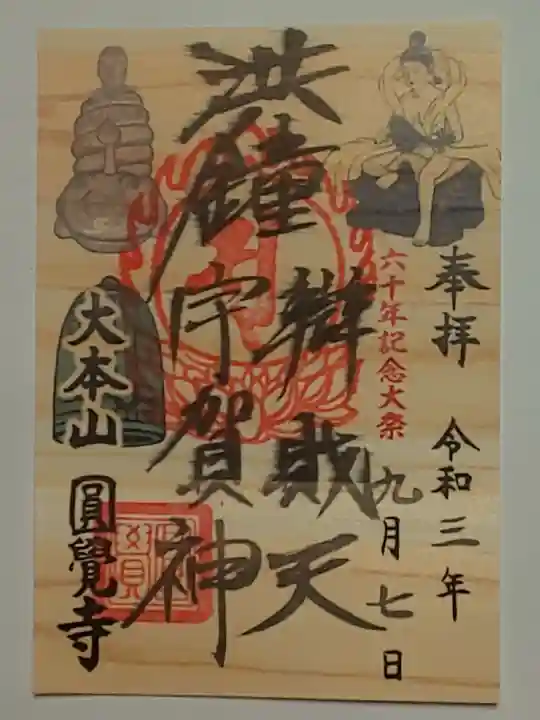 奉拝 令和三年
九月七日
六十年記念大祭
洪鐘
辨財天
宇賀神
大本山
圓覺寺